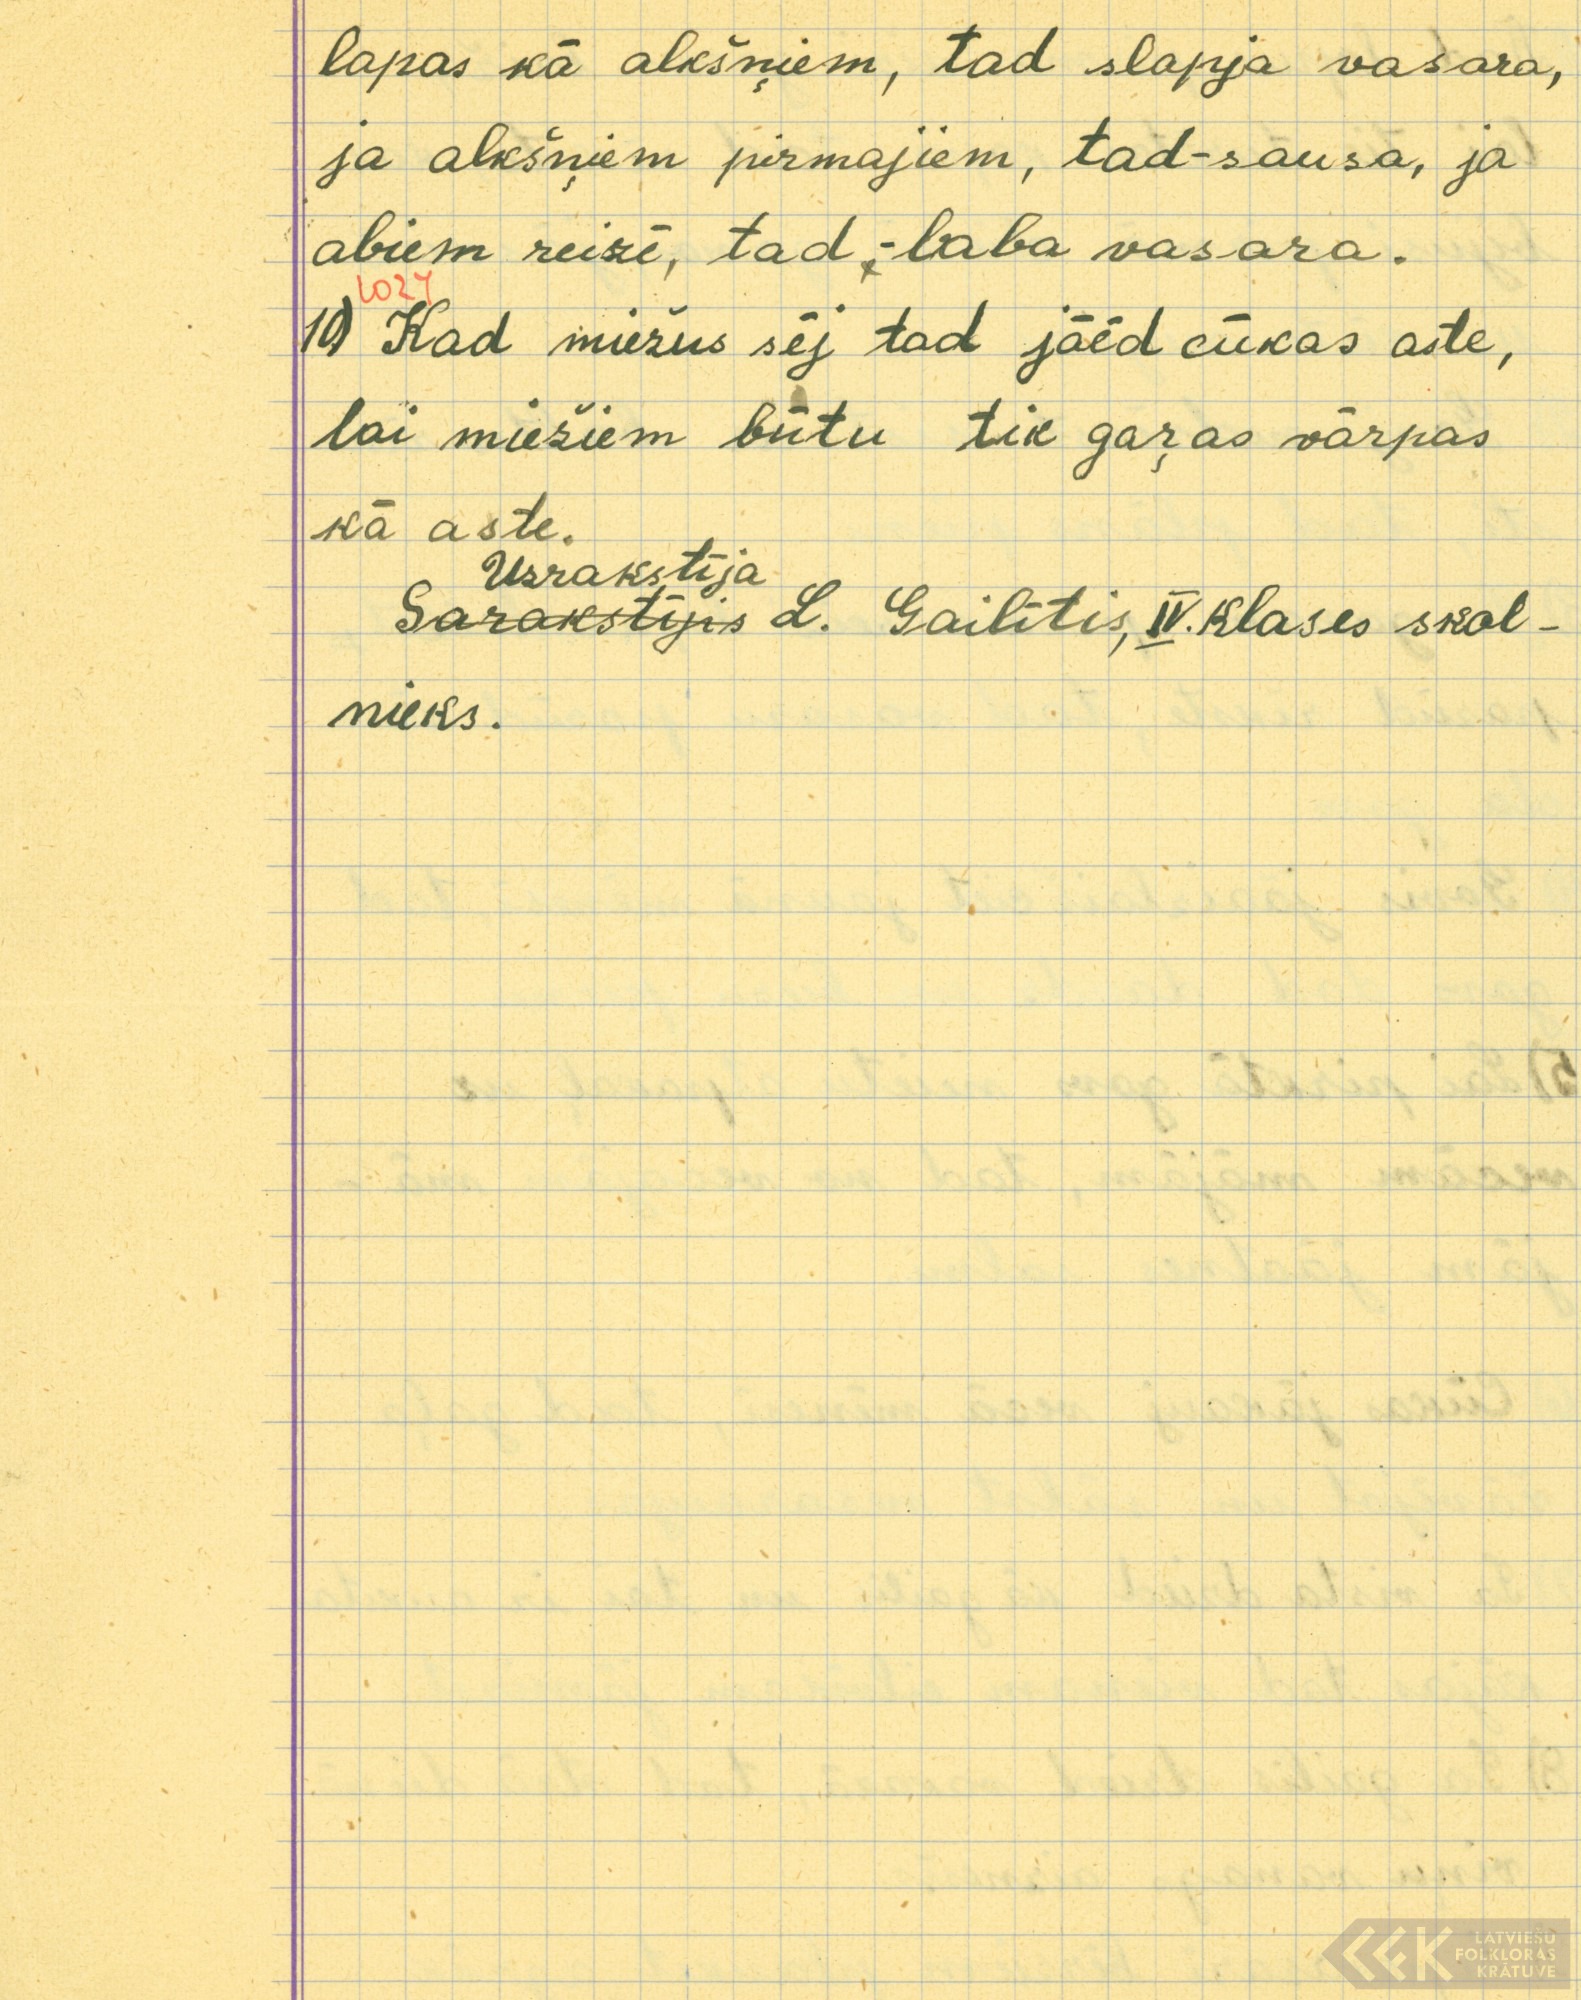 lapas kā alkšņiem, tad slapja vasara,
ja alkšņiem pirmajiem, tad-sausa, ja
abiem reizē, tad,-laba vasara.
1024
10) Kad miežus sēj tad jāēd cūkas aste,
lai miežiem būtu tik gaŗas vārpas
kā aste.
Uzrakstīja
Sarakstījis L. Gailītis, IV. klases skol-
nieks.
LATVIEŠU
FOLKLORAS
KRĀTUVE